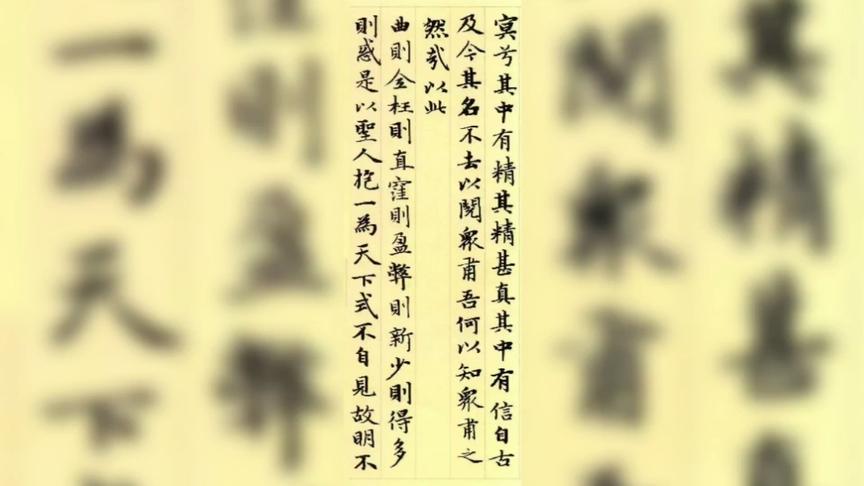 冥兮其中有精其精甚真其中有信自古
及今其名不去以閱衆甫吾何以知衆甫之
然哉以此
曲則全枉則直窪則盈弊則新少則得多
則惑是以聖人抱一為天下式不自見故明不